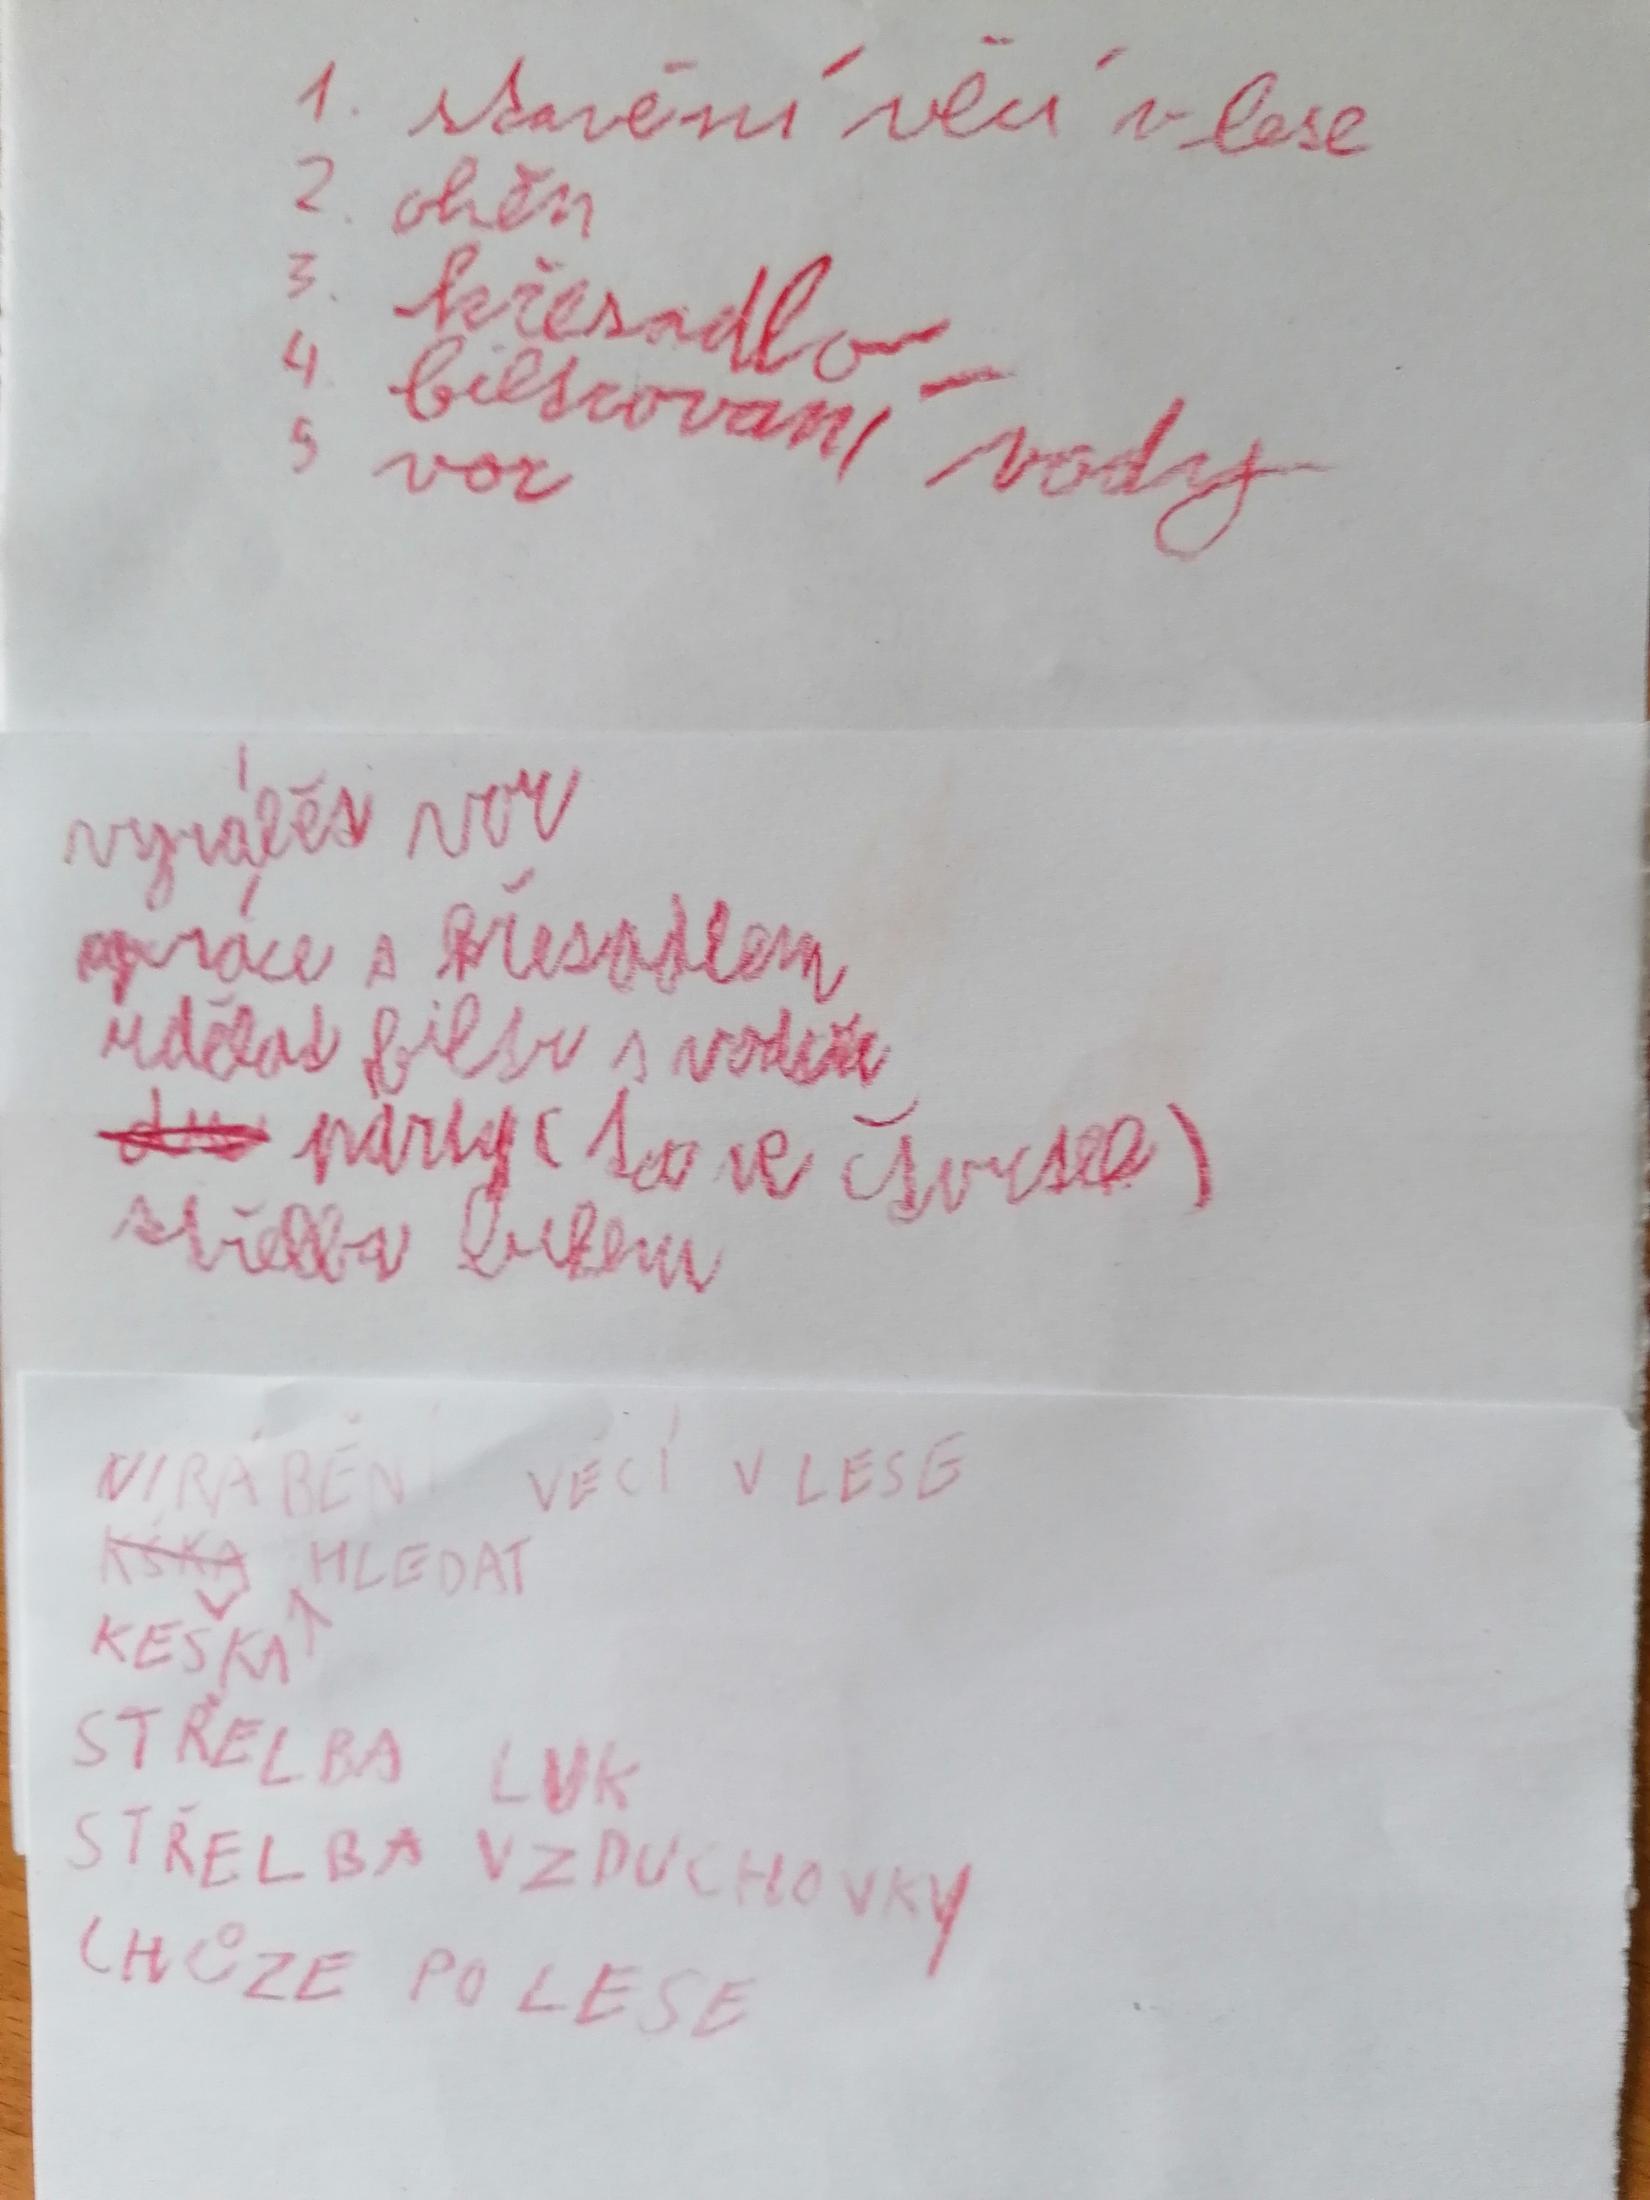 1. stavění věcí v lese
2. ohěn
3. křesadlo
4. filtrovaní vody
5 vor
vyrábět vor
práce s křesadlem
udělat filtr s vodou
párty (to ve čtvrtek)
střelba lukem
VIRÁBĚNÍ VĚCÍ V LESE
KŠKA HLEDAT
KEŠKA ↑
STŘELBA LUK
STŘELBA VZDUCHOVKY
CHŮZE PO LESE